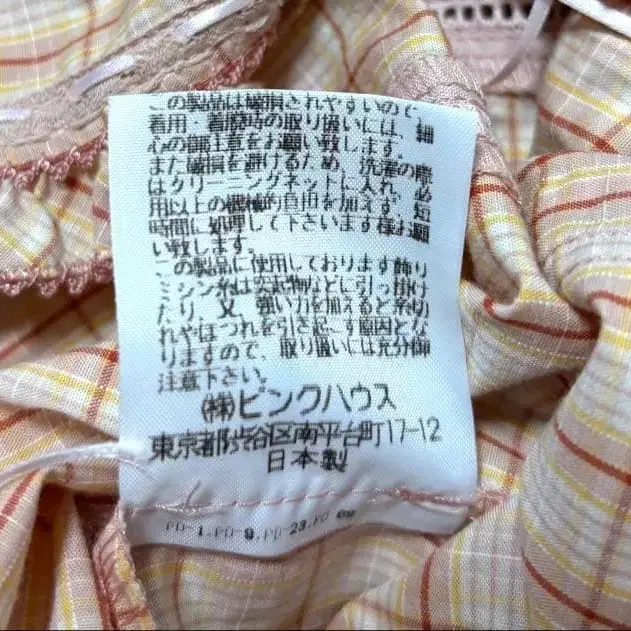 この製品は破損されやすいので、
着用・着脱時の取り扱いには、細
心の御注意をお願い致します。
また破損を避けるため、洗濯の際
はクリーニングネットに入れ、必
用以上の機械的負担を加えず、短
時間に処理して下さいます様お願
い致します。
この製品に使用しております飾り
ミシン糸は突起物などに引っ掛け
たり、又、強い力を加えると糸切
れやほつれを引き起こす原因とな
りますので、取り扱いには充分御
注意下さい。
㈱ピンクハウス
東京都渋谷区南平台町17-12
日本製
PD-1.PD-9.PD-23.PD